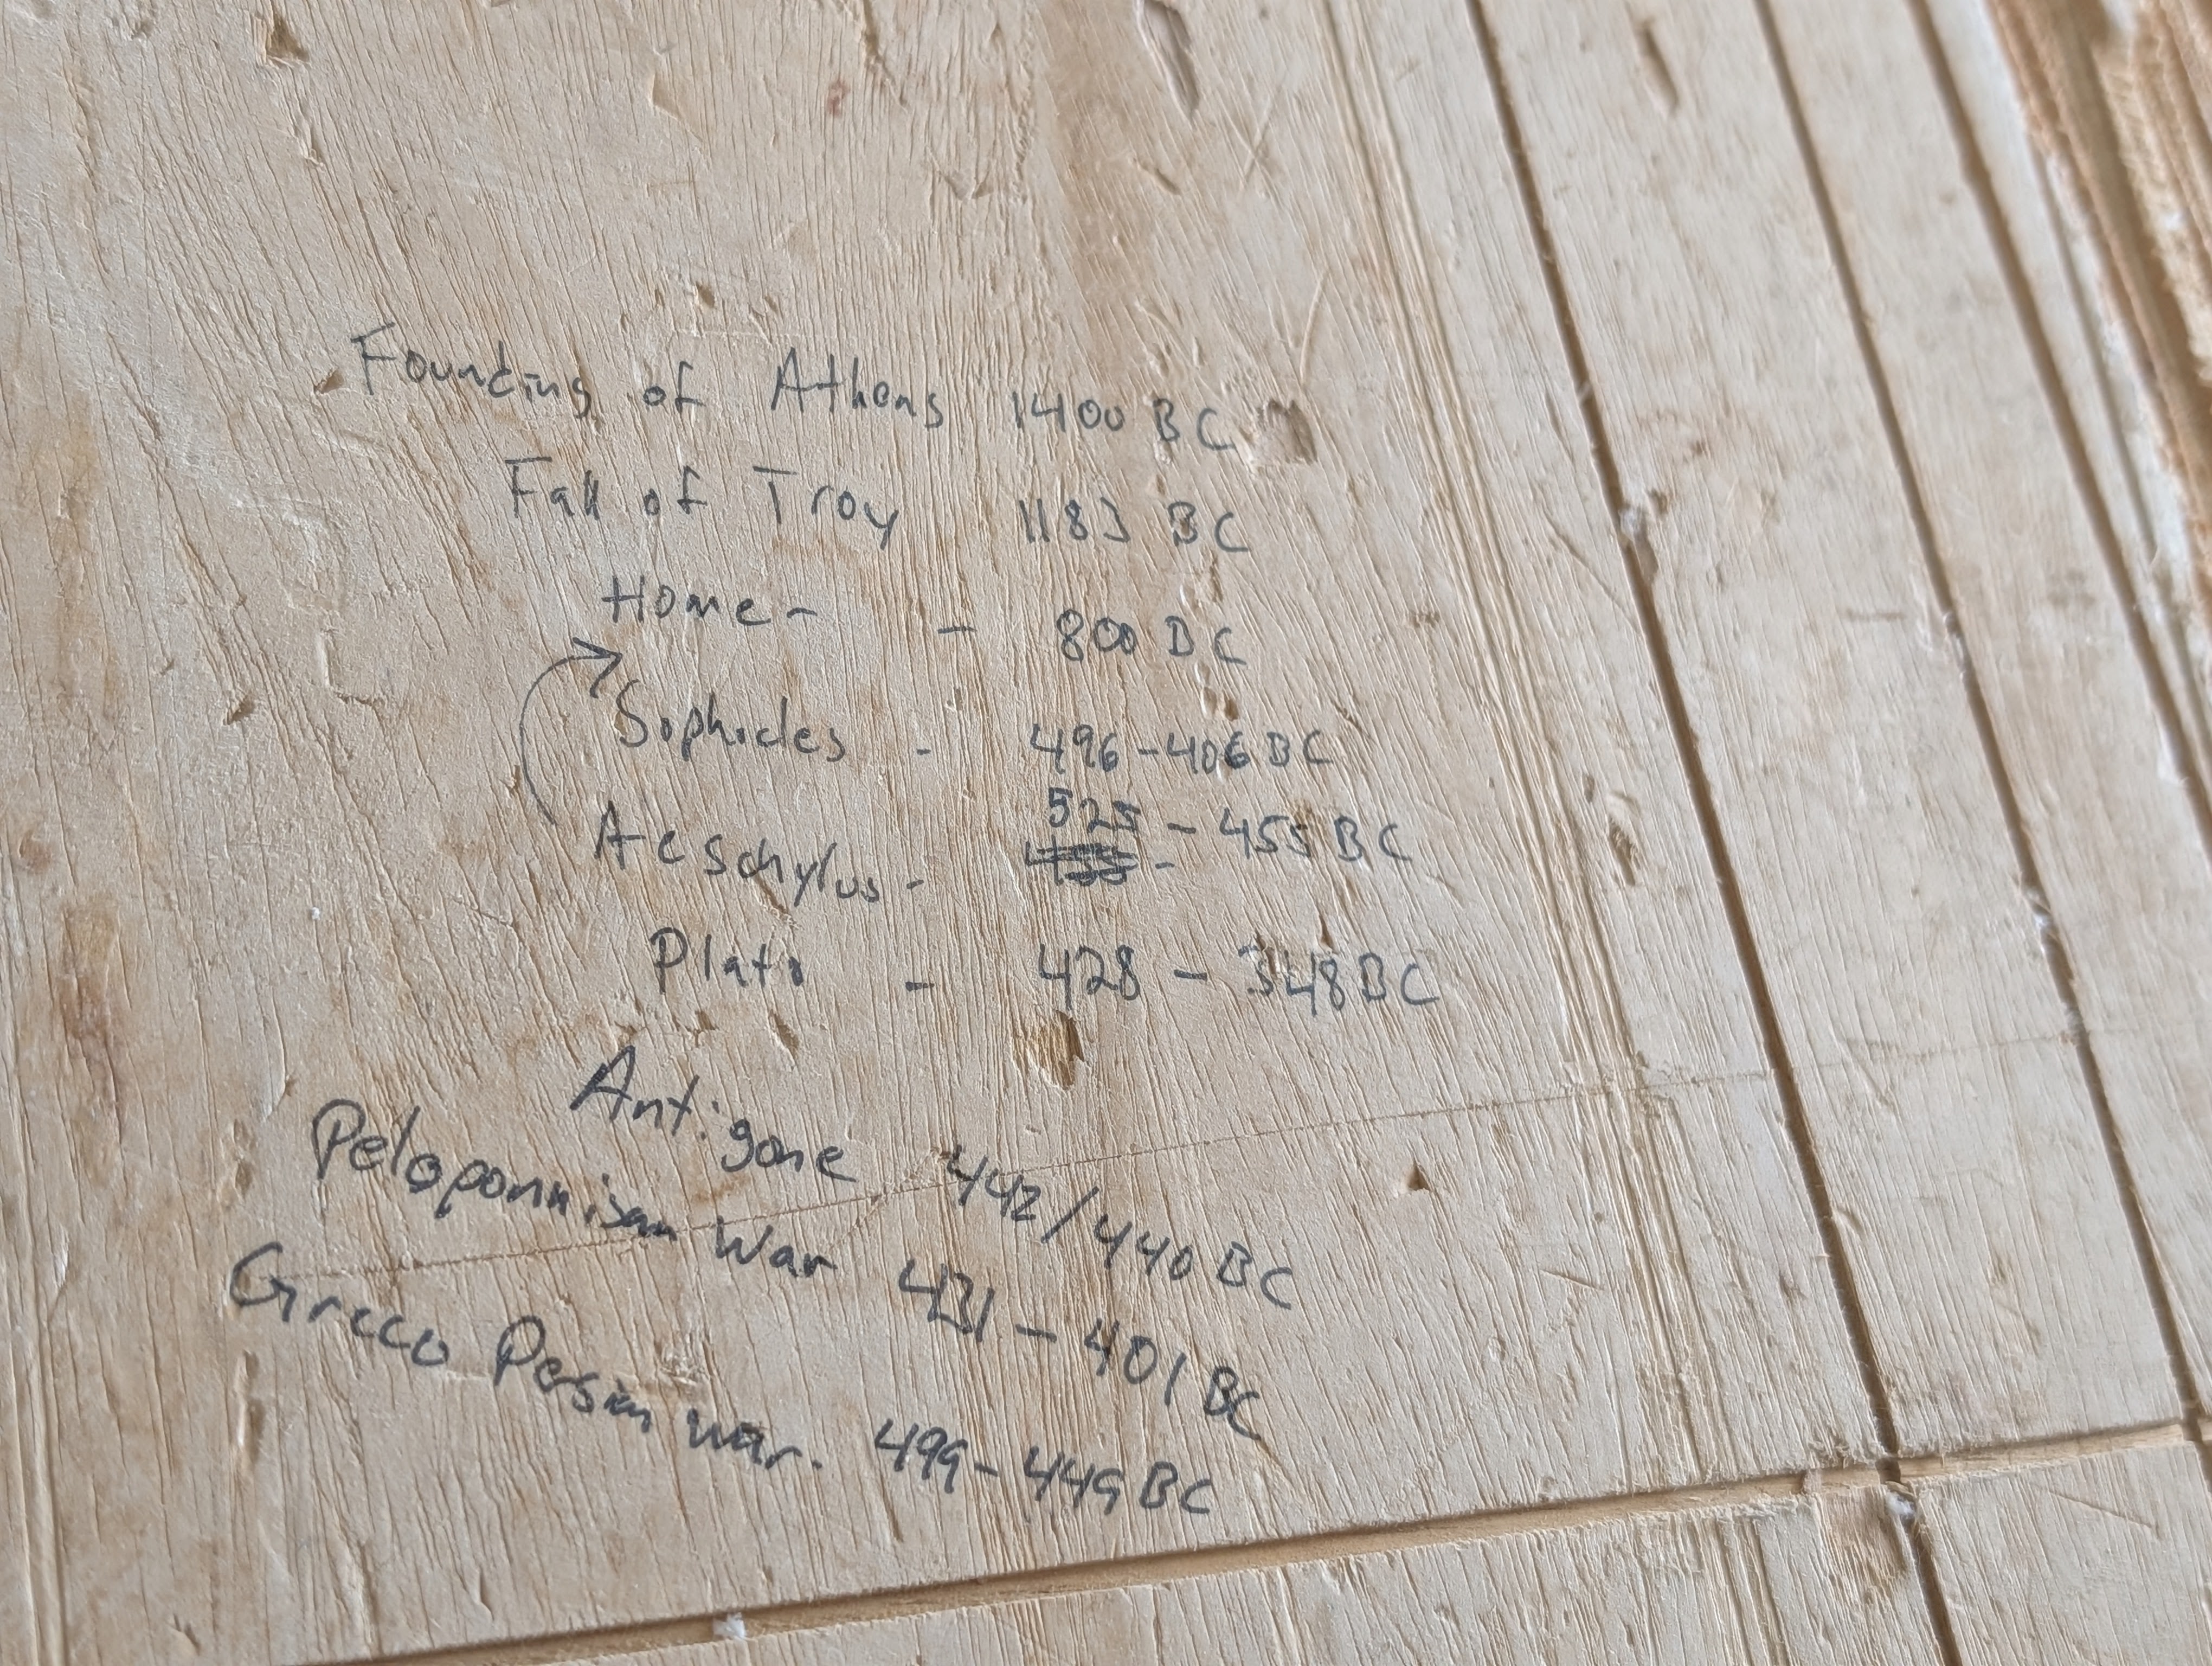 Founding of Athens 1400 BC
Fall of Troy 1183 BC
Homer - 800 BC
Sophocles - 496-406 BC
Aeschylus - 525 - 455 BC
Plato - 428 - 348 BC
Antigone 442/440 BC
Peloponnisan War 431 - 401 BC
Greco Persian war. 499-449 BC